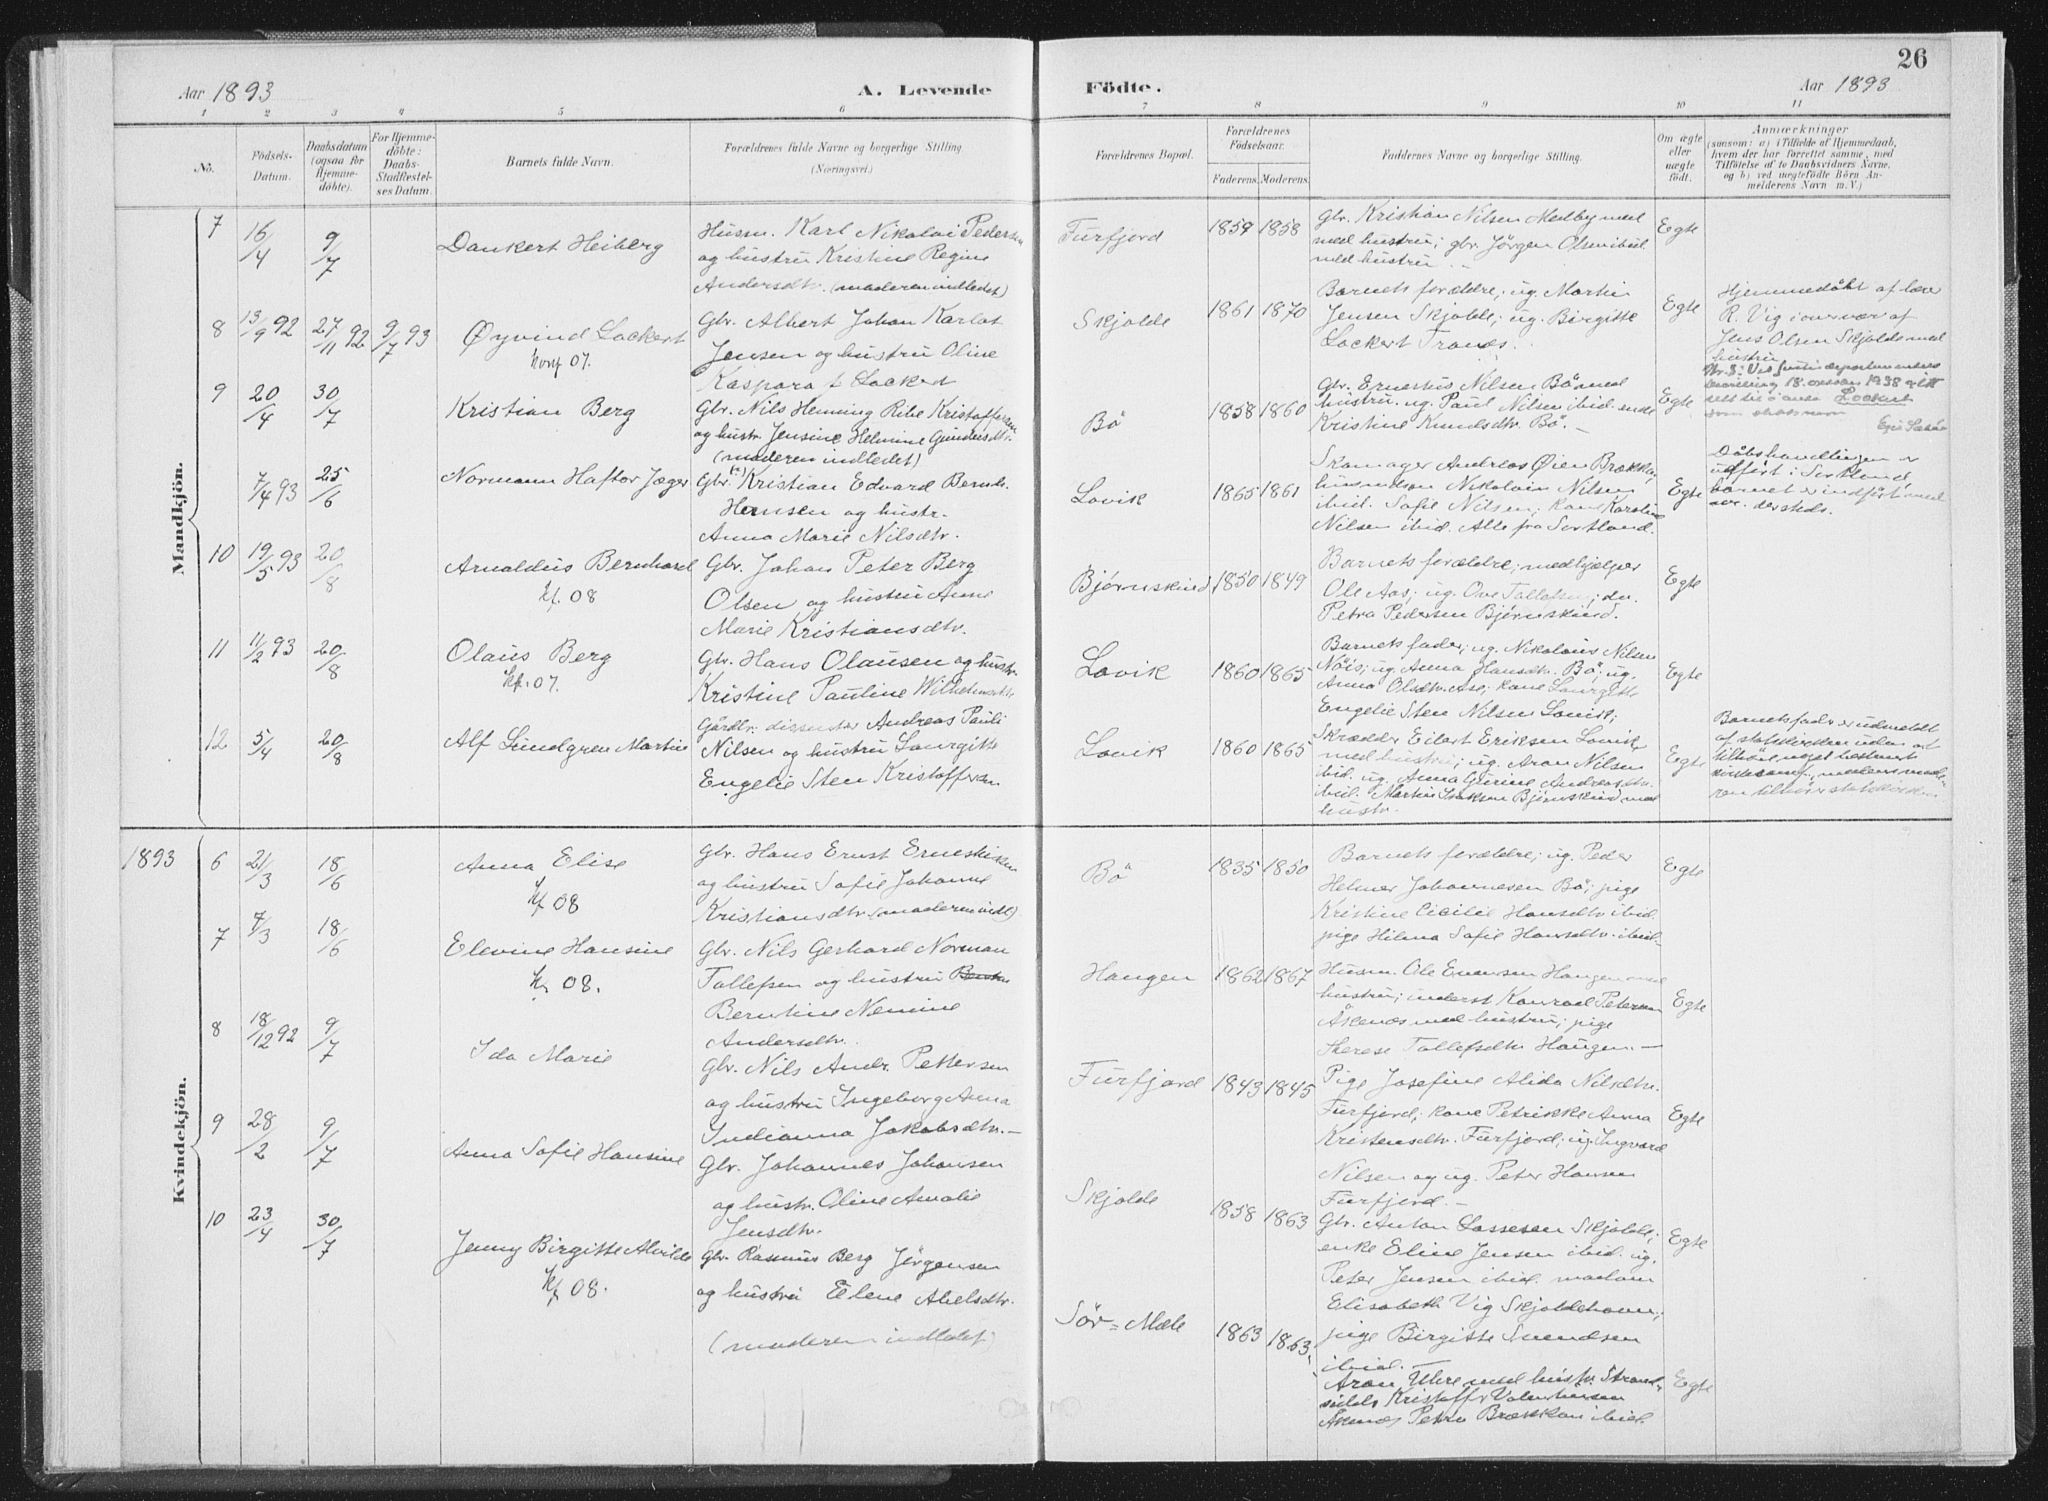 26
Aar 1893
A. Levende
Födte.
Aar 1893
1 2 3 4 5 6 7 8 9 10 11
No.
Födsels-
Datum.
Daabsdatum
(ogsaa for
Hjemme-
döbte).
For Hjemme-
döbte:
Daabs-
Stadfæstel-
ses Datum.
Barnets fulde Navn.
Forældrenes fulde Navne og borgerlige Stilling
(Næringsvei.)
Forældrenes Bopæl.
Forældrenes
Födselsaar.
Faderens. Moderens.
Faddernes Navne og borgerlige Stilling.
Om ægte
eller
uægte
født.
Anmærkninger
(saasom: a) i Tilfælde af Hjemmedaab,
hvem der har forrettet samme, med
Tilföielse af to Daabsvidners Navne,
og b) ved uægtefödte Börn An-
melderens Navn m. V.)
Mandkjön.
7
16/4
9/7
Dankert Heiberg
Husm. Karl Nikolai Pedersen
og hustru Kristine Regine
Andersdtr. (moderen indledet)
Furfjord
1859 1858
Gbr. Kristian Nilsen Medby med
med hustru; gbr. Jörgen Olsen ibid
med hustru
Egte
8
13/9 92
27/11 92
9/7 93
Øyvind Lockert
Konf 07.
Gbr. Albert Johan Karlot
Jensen og hustru Oline
Kaspara f Lockert
Skjolde
1861 1870
Barnets forældre; ug. Martin
Jensen Skjolde; ug. Birgitte
Lockert Tranøs.
Egte
Hjemmedöbt af lærer
R. Vig i overvær af
Jens Olsen Skjolde med
hustru
9
20/4
30/7
Kristian Berg
Gbr. Nils Henning Ribe Kristoffersen
og hustr. Jensine Helmine Gundersdtr.
(moderen indledet)
Bö
1858 1860
Gbr. Ernestus Nilsen Bö med
hustru. ug. Paul Nilsen ibid. enke
Kristine Knudsdtr. Bö.
Egte
7/4 93
25/6
Normann Haftor Jæger
Gbr. Kristian Edvard Bernh.
Hansen og hustr.
Anna Marie Nilsdtr.
Lovik
1865 1861
Skomager Andreas Øien Brækkan,
Nikolai Nilsen
ibid. Sofie Nilsen; kone Karoline
Nilsen ibid. Alle fra Sortland.
Egte
Dåbshandlingen er
udført i Sortland,
barnet er indført med
nr. dersteds.
10
19/5 93
20/8
Arnoldus Bernhard
Kf. 08
Gbr. Johan Peter Berg
Olsen og hustru Anne
Marie Kristiansdtr.
Bjørnskind
1850 1849
Barnets forældre; medhjelper
Ole Aas; ug. Ove Tollefsen;
Petra Pedersen Bjørnskind.
Egte
11
11/2 93
20/8
Olaus Berg
Kf. 07.
Gbr. Hans Olausen og hustr.
Kristine Pauline Wilhelmsdtr.
Lovik
1860 1865
Barnets fader; ug. Nikolaus Nilsen
Nöis; ug. Anna Hansdtr. Bö; ug.
Anna Olsdtr. Åse; kone Laurgitte
Engelie Sten Nilsen Lovik;
Egte
12
5/4
20/8
Alf Lundgren Martin
Gårdbr. dissenter Andreas Pauli
Nilsen og hustru Laurgitte
Engelie Sten Kristoffersen
Lovik
1860 1865
Skrædder Eilert Eriksen Lovik
med hustru; ug. Aron Nilsen
ibid. ug. Anna Gurine Andreasdtr.
ibid. Martin Isaksen Bjørnskind med
hustr.
Egte
Barnets fader er udmeldt
af statskirken uden at
tilhöre noget bestemt
kirkesamf., medens mode-
ren tilhörer statskirken
Kvindekjön.
1893
6
21/3
18/6
Anna Elise
Kf 08
Gbr. Hans Ernst Erneskisen
og hustru Sofie Johanne
Kristiansdtr. (moderen indl.)
Bö
1835 1850
Barnets forældre; ug. Peder
Helmer Johannesen Bö; pige
Kristine Cicilie Hansdtr ibid.
pige Hilma Sofie Hansdtr. ibid.
Egte
7
7/3
18/6
Elevine Hansine
Kf 08.
Gbr. Nils Gerhard Norman
Tollefsen og hustru
Berntine Nemine
Andersdtr.
Haugen
1862 1867
Husm. Ole Evensen Haugen med
hustru; inderst Konrad Petersen
Åkenæs med hustru; pige
Therese Tollefsdtr Haugen.
Egte
8
18/12 92
9/7
Ida Marie
Gbr. Nils Andr. Pettersen
og hustru Ingeborg Anna
Indianna Jakobsdtr.
Furfjord
1843 1845
Pige Josefine Alida Nilsdtr.
Furfjord; kone Petrikke Anna
Kristensdtr. Furfjord; ug. Ingvard
Nilsen og ug. Peter Hansen
Furfjord.
Egte
9
28/2
9/7
Anna Sofie Hansine
Gbr. Johannes Johansen
og hustr. Oline Amalie
Jensdtr.
Skjolde
1858 1863
Gbr. Anton Lassesen Skjolde;
enke Eline Jensen ibid. ug.
Peter Jensen ibid. madam
Elisabeth Vig Skjoldehavn;
pige Birgitte Svendsen
ibid.
Egte
10
23/4
30/7
Jenny Birgitte Alvilde
Kf 08.
Gbr. Rasmus Berg Jörgensen
og hustru Elene Abelsdtr.
(moderen indledet)
Sör-Mele
1863 1863
Aron Uhre med hustr. Strand-
Kristoffer Valentinsen
Åkenæs Petra Brækkan ibid.
Egte